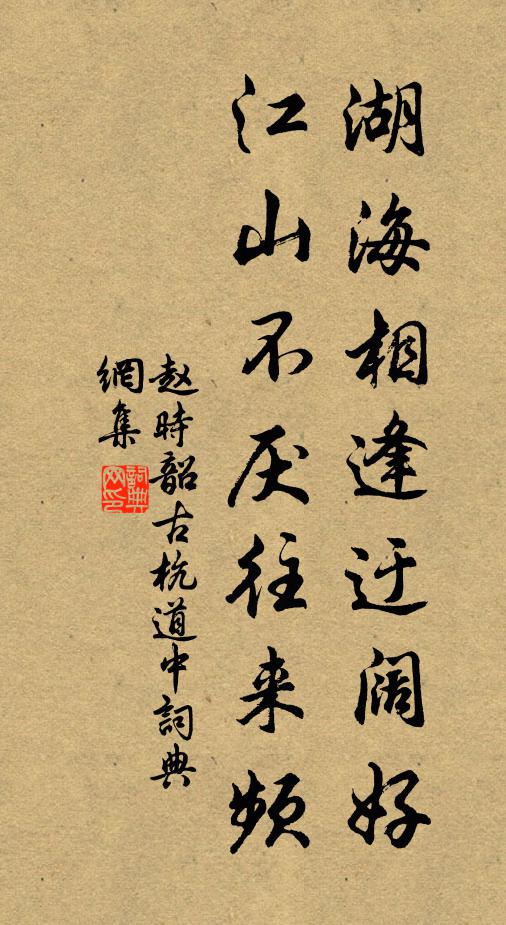 湖海相逢迂阔好
江山不厌往来频
赵时韶古杭道中詞典
網集
詞典
网印